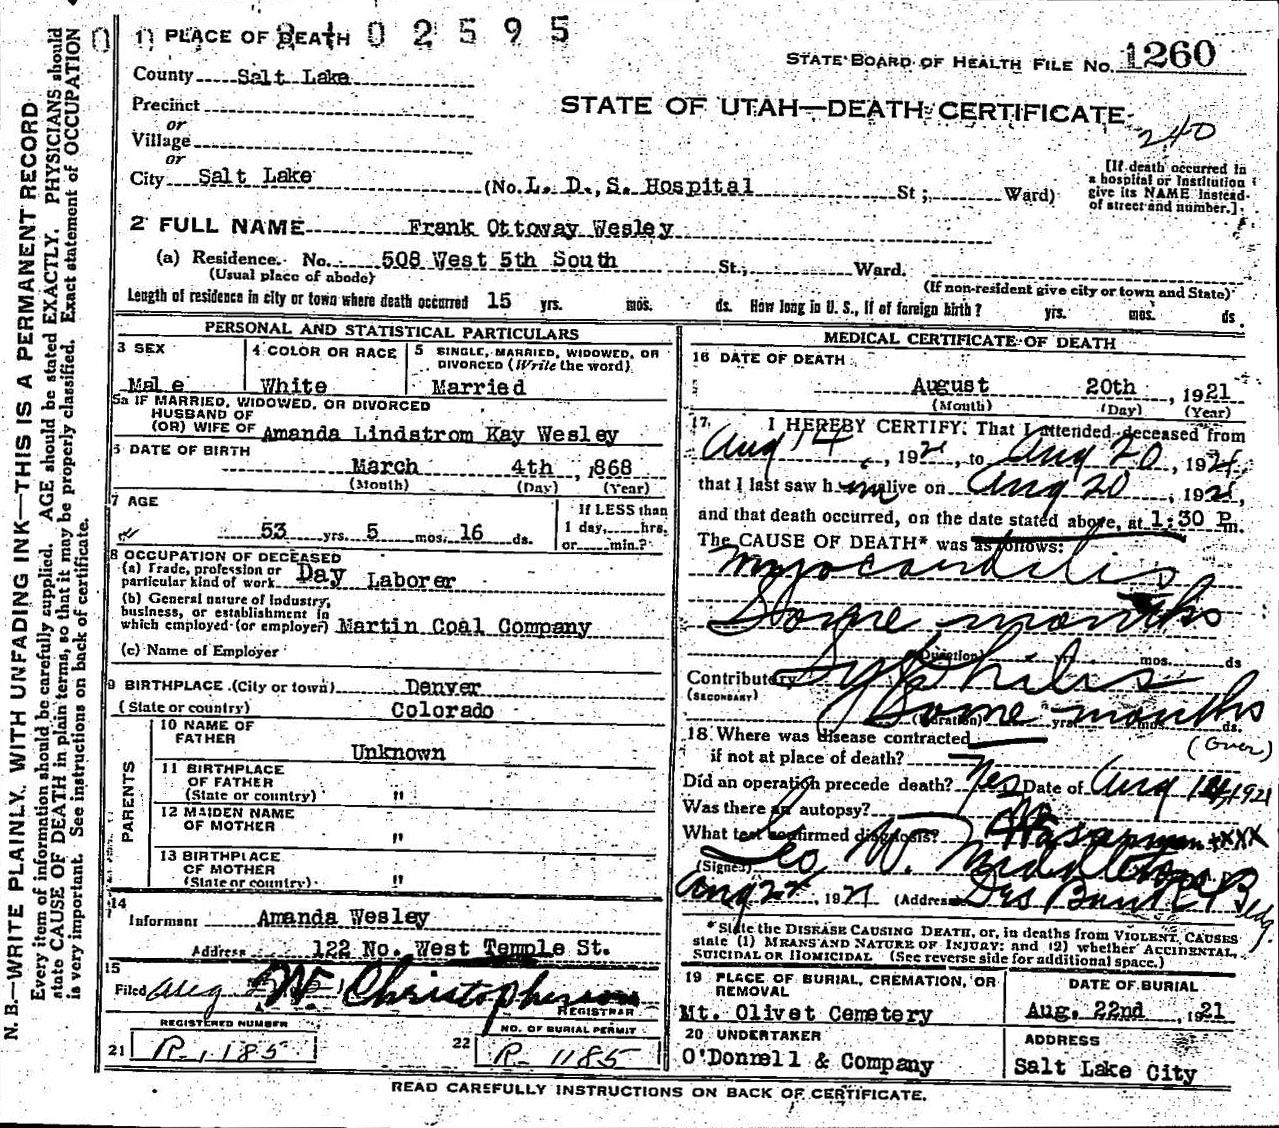 1) PLACE OF DEATH 02595
County Salt Lake
STATE BOARD OF HEALTH FILE No. 1260
Precinct
STATE OF UTAH—DEATH CERTIFICATE
240
or
Village
or
City Salt Lake (No. L. D., S. Hospital St; Ward)
[If death occurred in
a hospital or Institution
give its NAME instead
of street and number.]
2 FULL NAME Frank Ottoway Wesley
(a) Residence. No. 508 West 5th South St., Ward.
(Usual place of abode) (If non-resident give city or town and State)
Length of residence in city or town where death occurred 15 yrs. mos. ds. How long in U. S., if of foreign birth? yrs. mos. ds.
PERSONAL AND STATISTICAL PARTICULARS
3 SEX Male
4 COLOR OR RACE White
5 SINGLE, MARRIED, WIDOWED, OR
DIVORCED (Write the word)
Married
5a IF MARRIED, WIDOWED, OR DIVORCED
HUSBAND OF
(OR) WIFE OF Amanda Lindstrom Kay Wesley
6 DATE OF BIRTH
March 4th , 1868
(Month) (Day) (Year)
7 AGE
53 yrs. 5 mos. 16 ds.
If LESS than
1 day, hrs.
or min.?
8 OCCUPATION OF DECEASED
(a) Trade, profession or
particular kind of work Day Laborer
(b) General nature of Industry,
business, or establishment in
which employed (or employer) Martin Coal Company
(c) Name of Employer
9 BIRTHPLACE (City or town) Denver
(State or country) Colorado
PARENTS
10 NAME OF
FATHER Unknown
11 BIRTHPLACE
OF FATHER
(State or country) "
12 MAIDEN NAME
OF MOTHER "
13 BIRTHPLACE
OF MOTHER
(State or country) "
14
Informant Amanda Wesley
Address 122 No. West Temple St.
15
Filed Aug Christopherson
REGISTRAR
REGISTERED NUMBER
21 R-1185
NO. OF BURIAL PERMIT
22 R-1185
MEDICAL CERTIFICATE OF DEATH
16 DATE OF DEATH
August 20th , 1921
(Month) (Day) (Year)
17. I HEREBY CERTIFY, That I attended deceased from
Aug 14, 1921, to Aug 20, 1921,
that I last saw him alive on Aug 20, 1921,
and that death occurred, on the date stated above, at 1:30 P m.
The CAUSE OF DEATH* was as follows:
Myocarditis
Some months
(Duration) yr. mos. ds
Contributory Syphilis
(SECONDARY)
Some months
(Duration) yrs. mos. ds.
18. Where was disease contracted
(over)
if not at place of death?
Did an operation precede death? Yes Date of Aug 14, 1921
Was there an autopsy?
What test confirmed diagnosis? Wasserman +XXX
(Signed) Geo W. Middleton M. D.
Aug 22, 1921 (Address) Des Bldg.
*State the DISEASE CAUSING DEATH, or, in deaths from VIOLENT CAUSES
state (1) MEANS AND NATURE OF INJURY; and (2) whether ACCIDENTAL,
SUICIDAL OR HOMICIDAL (See reverse side for additional space.)
19 PLACE OF BURIAL, CREMATION, OR
REMOVAL
Mt. Olivet Cemetery
DATE OF BURIAL
Aug. 22nd , 1921
20 UNDERTAKER
O'Donnell & Company
ADDRESS
Salt Lake City
READ CAREFULLY INSTRUCTIONS ON BACK OF CERTIFICATE.
N. B.—WRITE PLAINLY, WITH UNFADING INK—THIS IS A PERMANENT RECORD
Every item of information should be carefully supplied. AGE should be stated EXACTLY. PHYSICIANS should
state CAUSE OF DEATH in plain terms, so that it may be properly classified. Exact statement of OCCUPATION
is very important. See instructions on back of certificate.